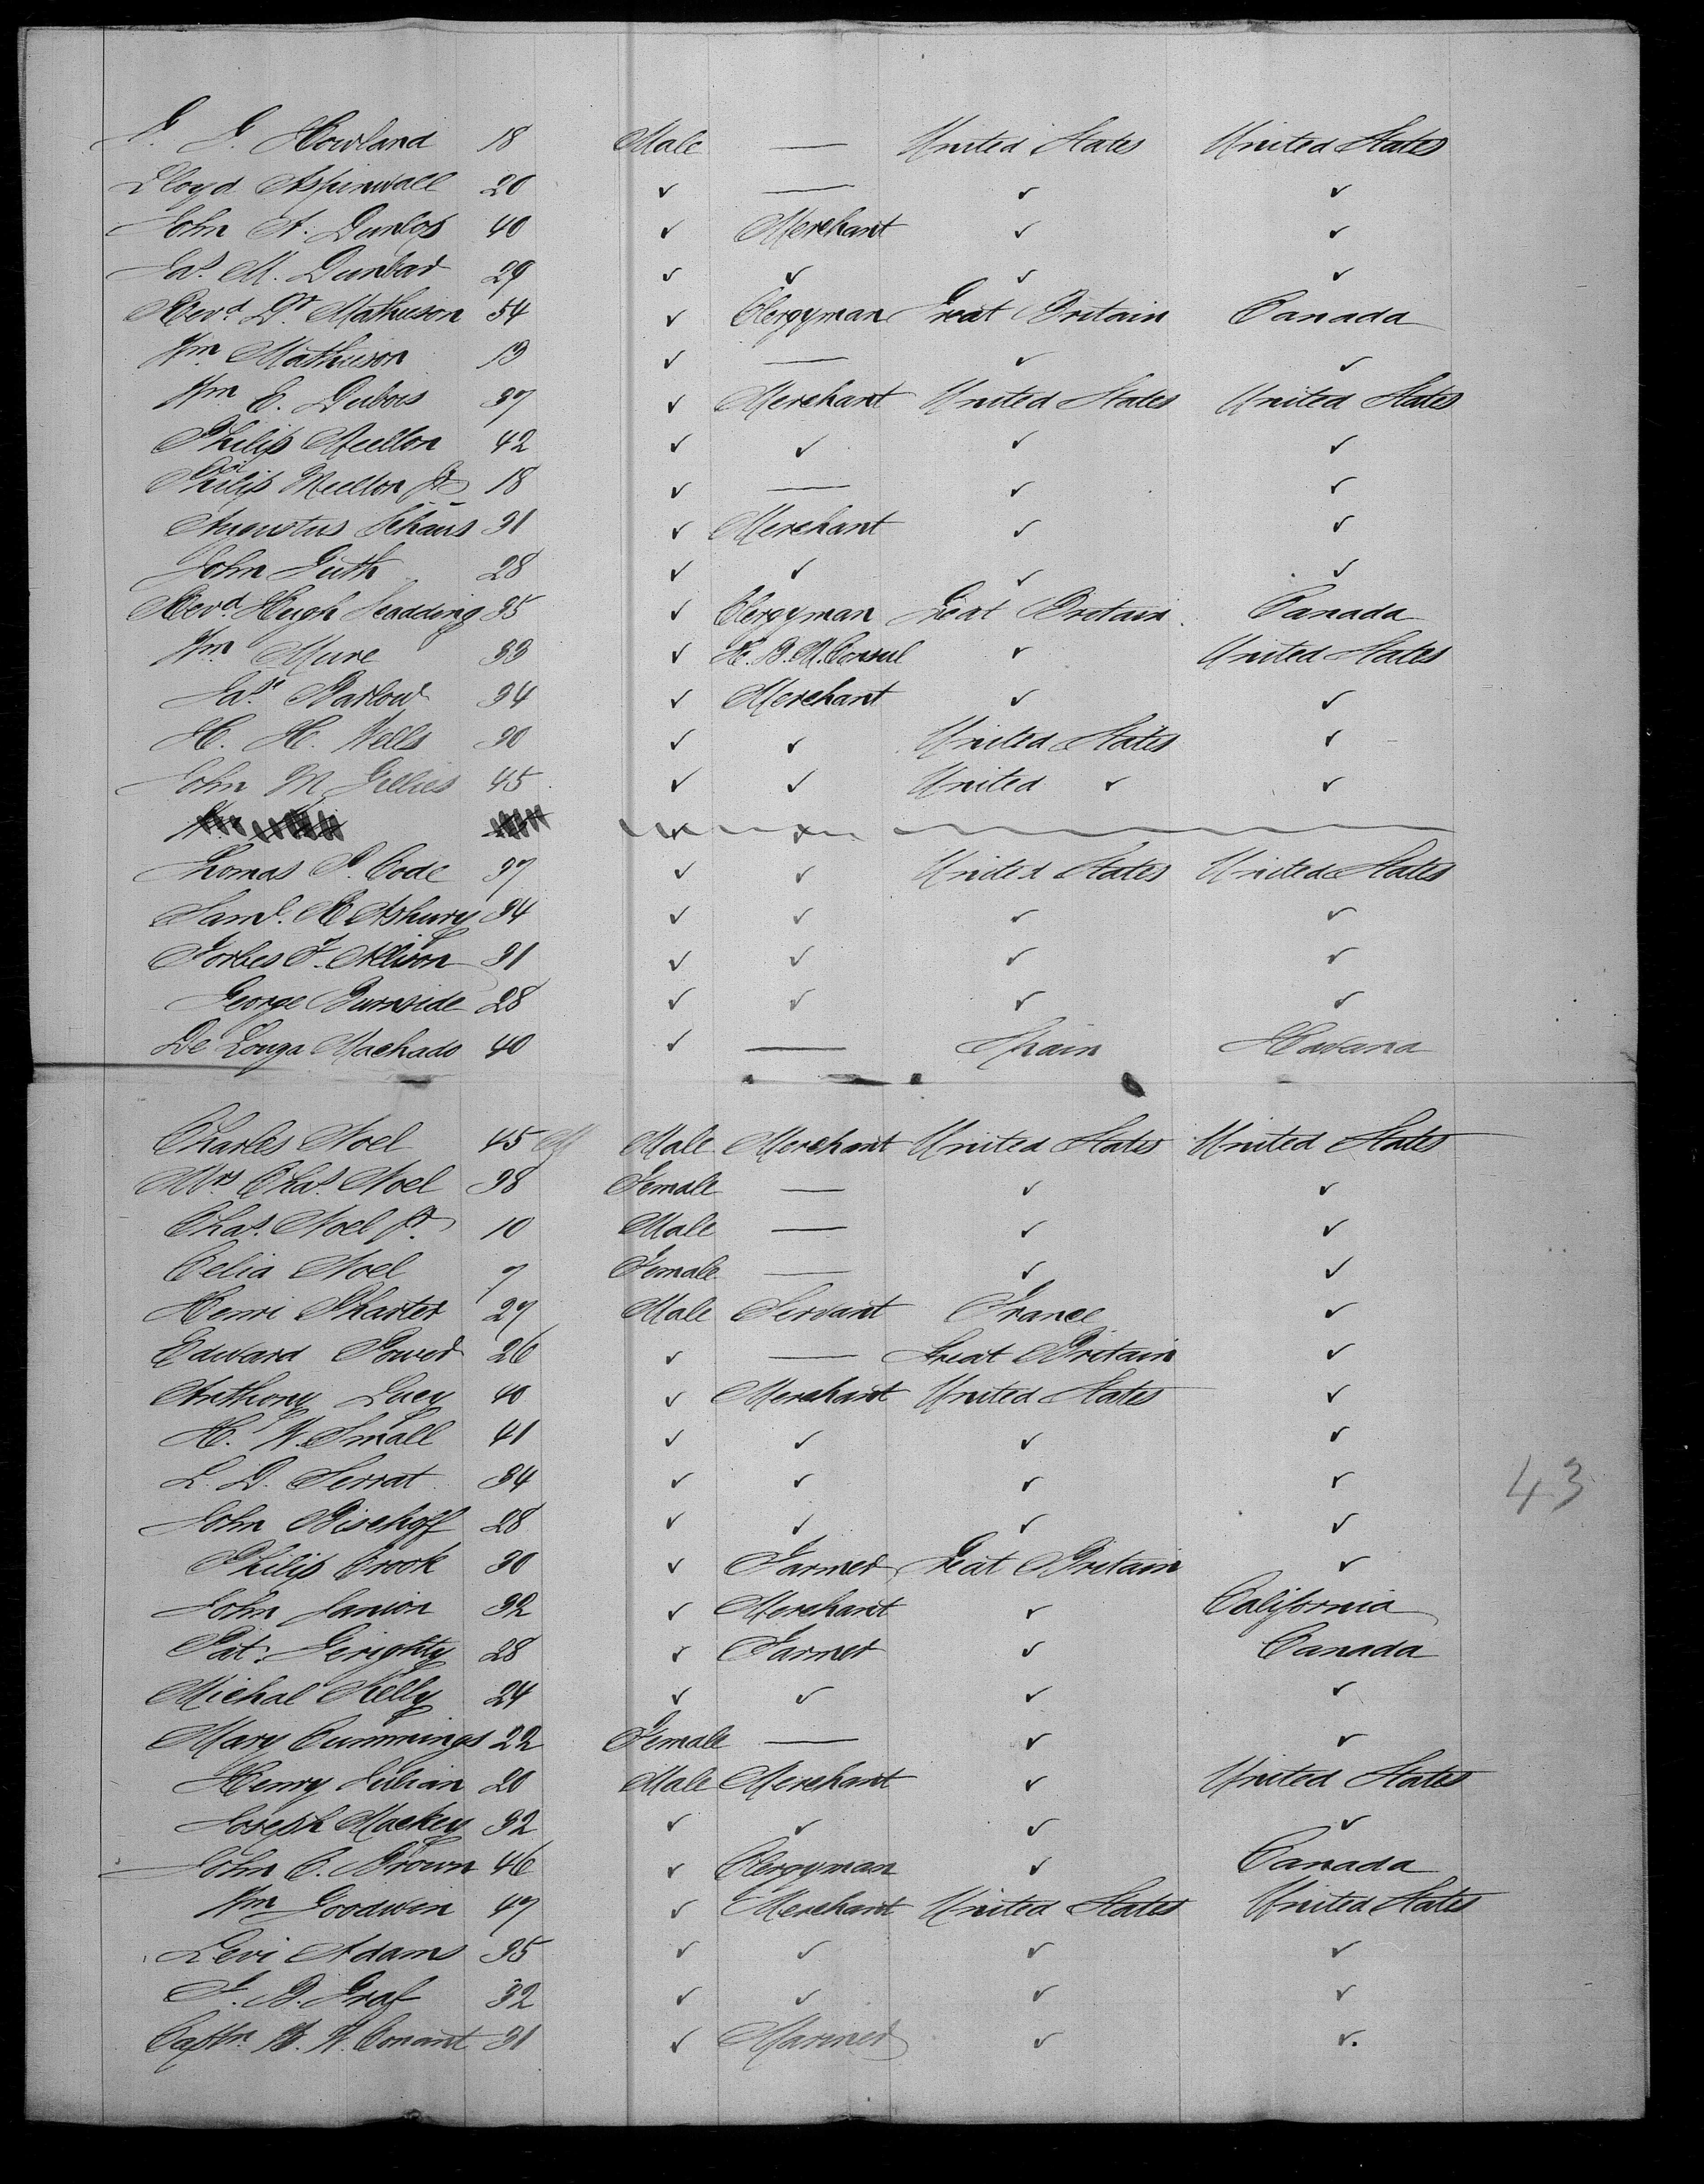 G. G. Howland 18 Male — United States United States
Lloyd Aspinwall 20 ✓ — ✓ ✓
John A. Dunlop 40 ✓ Merchant ✓ ✓
Jas. M. Dunbar 29 ✓ ✓ ✓ ✓
Revd. Dr. Mathieson 54 ✓ Clergyman Great Britain Canada
Wm. Mathieson 13 ✓ — ✓ ✓
Wm E. Dubois 37 ✓ Merchant United States United States
Philip 42 ✓ ✓ ✓ ✓
Philip Jr 18 ✓ — ✓ ✓
Augustus Schaus 31 ✓ Merchant ✓ ✓
John Guth 28 ✓ ✓ ✓ ✓
Revd. Hugh Scadding 35 ✓ Clergyman Great Britain Canada
Wm Mure 33 ✓ H. B. M. Consul ✓ United States
Jas. Barlow 34 ✓ Merchant ✓ ✓
H. H. Wells 30 ✓ ✓ United States ✓
John M Gillies 45 ✓ ✓ United ✓ ✓
Thomas P. Cope 37 ✓ ✓ United States United States
Saml. R Asbury 34 ✓ ✓ ✓ ✓
Forbes J. Allison 31 ✓ ✓ ✓ ✓
George Burnside 28 ✓ ✓ ✓ ✓
De Machado 40 ✓ — Spain Havana
Charles Noel 45 M Male Merchant United States United States
Mrs Chas. Noel 38 Female — ✓ ✓
Chas. Noel Jr. 10 Male — ✓ ✓
Celia Noel 7 Female — ✓ ✓
Henri Charter 27 Male Servant France ✓
Edward Power 26 ✓ — Great Britain ✓
Anthony Lucy 40 ✓ Merchant United States ✓
H. W. Small 41 ✓ ✓ ✓ ✓
L. D. Serrat 34 ✓ ✓ ✓ ✓
John Bischoff 28 ✓ ✓ ✓ ✓
Philip Crook 30 ✓ Farmer Great Britain ✓
John Janion 32 ✓ Merchant ✓ California
Pat. Gerighty 28 ✓ Farmer ✓ Canada
Michal Kelly 24 ✓ ✓ ✓ ✓
Mary Cummings 22 Female — ✓ ✓
Henry Julian 20 Male Merchant ✓ United States
Joseph Mackey 32 ✓ ✓ ✓ ✓
John C. Brown 46 ✓ Clergyman ✓ Canada
Wm Goodwin 47 ✓ Merchant United States United States
Levi Adams 35 ✓ ✓ ✓ ✓
F. B. Graf 32 ✓ ✓ ✓ ✓
Captn. W. Conant 31 ✓ Mariner ✓ ✓.
43